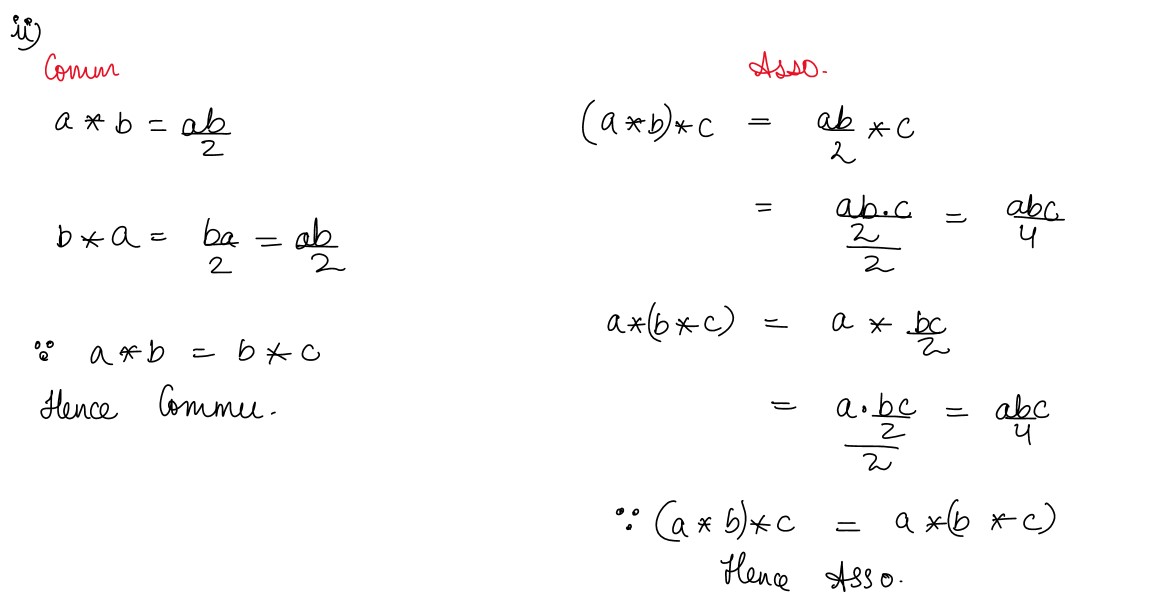 ii)
Comm
a * b = ab/2
b * a = ba/2 = ab/2
∵ a * b = b * c
Hence Commu.
Asso.
(a * b) * c = ab/2 * c
= (ab/2 . c)/2 = abc/4
a * (b * c) = a * bc/2
= (a . bc/2)/2 = abc/4
∵ (a * b) * c = a * (b * c)
Hence Asso.